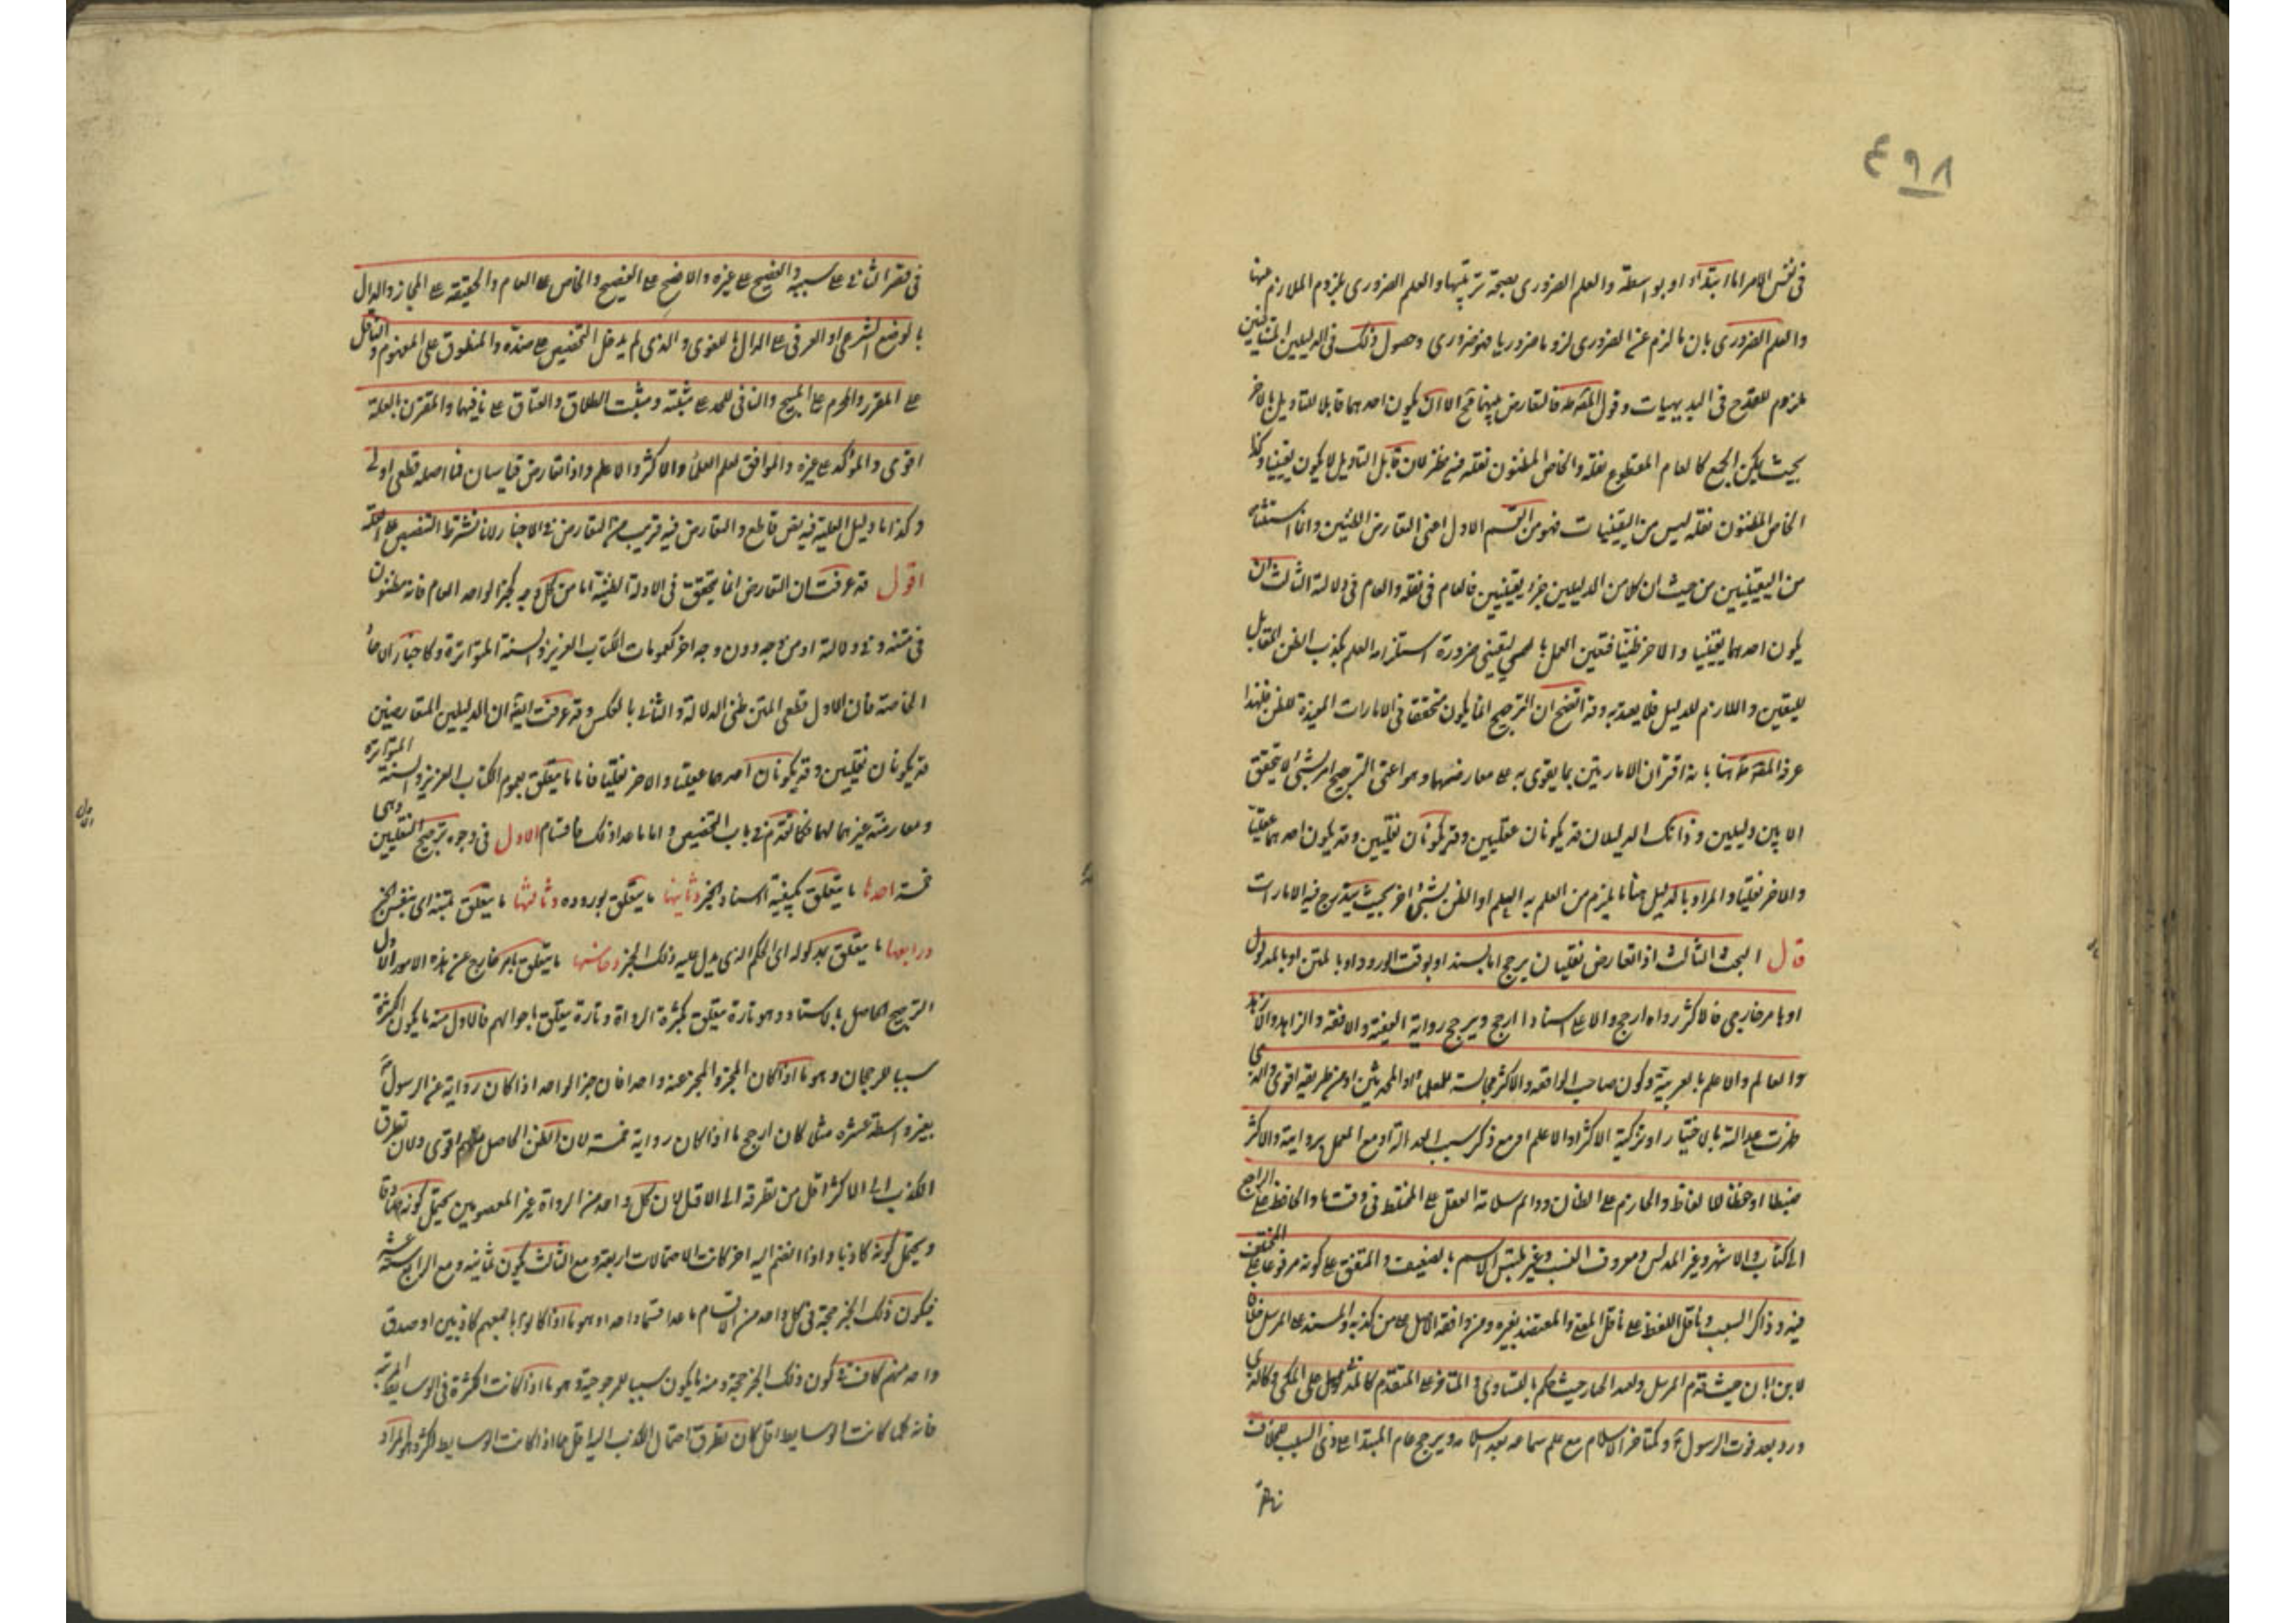 ٤٩٨
في نفس الامر اما ابتداء او بواسطة والعلم الضروري بصحة ترتيبها والعلم الضروري بلزوم اللازم عنها
والعلم الضروري بان ما لزم عن الضروري لزوما ضروريا فهو ضروري وحصول ذلك في الدليلين المتنافيين
ملزوم للقدح في البديهيات وقول المصّ طه فالتعارض بينهما فتح الا ان يكون احدهما قابلا للتاويل بالاخر
بحيث يمكن الجمع كالعام المقطوع بنقله والخاص المظنون نقله فيه نظر لان قابل التاويل لا يكون يقينيا وكذا
الخاص المظنون نقله ليس من اليقينيات فهو من القسم الاول اعني التعارض الظنيين وانما استثناه
من اليقينيين من حيث ان كلا من الدليلين جزء يقينيين فالعام في نقله والعام في دلالة الثالث ان
يكون احدهما يقينيا والاخر ظنيا فتعين العمل باليقيني ضرورة استلزام العلم بكذب الظن المقابل
لليقين واللازم للدليل فلا يعتد به وقد اتضح ان الترجيح انما يكون متحققا في الامارات المفيدة للظن فلهذا
عرف المصّ طه هنا بانه اقتران الامارتين بما يقوى به على معارضها وهو اعني الترجيح امر نسبي لا يتحقق
الا بين دليلين وذانك الدليلان قد يكونان عقليين وقد يكونان نقليين وقد يكون احدهما عقليا
والاخر نقليا والمراد بالدليل هنا ما يلزم من العلم به العلم او الظن بشئ اخر بحيث يندرج فيه الامارات
قال البحث الثالث اذا تعارض نقليان يرجح اما بالسند او بوقت الورود او بالمتن او بالمدلول
او بامر خارجي فالاكثر رواه ارجح والاعلى اسنادا ارجح ويرجح رواية الفقيه والافقه والزاهد والازهد
والعالم والاعلم بالعربية وكون صاحب الواقعة والاكثر مجالسة للعلماء او المحدثين او من طريقه اقوى والذي
ظهرت عدالته بالاختيار او بتزكية الاكثر او الاعلم او مع ذكر سبب العدالة او مع العمل بروايته والاكثر
ضبطا او حفظا لالفاظ والجازم على الظان ودائم سلامة العقل على المختلط في وقت ما والحافظ على الراجع
الى الكتاب والاشهر وغير المدلس ومعروف النسب وغير ملتبس الاسم بالضعيف والمتفق على كونه مرفوعا على المختلف
فيه وذاكر السبب وناقل اللفظ على ناقل المعنى والمعتضد بغيره ومن وافقه الاصل على من كذبه والمسند على المرسل خلافا
لابن ابان حيث قدم المرسل ولعبد الجبار حيث حكم بالتساوي والمتاخر على المتقدم كالمدني على المكي وكالذي
ورد بعد قوت الرسول وكمتاخر الاسلام مع علم سماعه بعد اسلامه ويرجح عام المبتدا على ذي السبب للخلاف
في قصر الثاني على سببه والفصيح على غيره والافصح على الفصيح والخاص على العام والحقيقة على المجاز والدال
بالوضع الشرعي او العرفي على الدال باللغوي والذي لم يدخل التخصيص على ضده والمنطوق على المفهوم والناقل
على المقرر والمحرم على المبيح والنافي للحد على مثبته ومثبت الطلاق والعتاق على نافيهما والمقترن بالعلة
اقوى والمؤكد على غيره والموافق لعلم العلماء والاكثر والاعلم واذا تعارض قياسان فما اصله قطعي اولى
وكذا ما دليل العلية فيه نص قاطع والتعارض فيه قريب من التعارض في الاخبار لانا نشترط التنصيص على العلة
اقول قد عرفت ان التعارض انما يتحقق في الادلة الظنية اما من كل وجه كخبر الواحد العام فانه مظنون
في متنه وفي دلالته او من وجه دون وجه اخر كعمومات الكتاب العزيز والسنة المتواترة وكاخبار الاحاد
الخاصة فان الاول قطعي المتن ظني الدلالة والثاني بالعكس وقد عرفت ايضا ان الدليلين المتعارضين
قد يكونان نقليين وقد يكونان احدهما عقليا والاخر نقليا فاما ما يتعلق بعموم الكتاب العزيز والسنة المتواترة
ومعارضة غيرهما لهما فكما تقدم في باب التخصيص واما ما عدا ذلك فاقسام الاول في وجوه ترجيح النقليين وهي
خمسة احدها ما يتعلق بكيفية اسناد الخبر وثانيها ما يتعلق بوروده وثالثها ما يتعلق بمتنه اي بنفس الخبر
ورابعها ما يتعلق بمدلوله اي الحكم الذي يدل عليه ذلك الخبر وخامسها ما يتعلق بامر خارج عن هذه الامور الاول
الترجيح الحاصل بالاسناد وهو تارة يتعلق بكثرة الرواة وتارة يتعلق باحوالهم فالاول منه ما يكون الكثرة
سببا للرجحان وهو ما اذا كان المخبر والمخبر عنه واحدا فان خبر الواحد اذا كان رواية عن الرسول
بغير واسطة عشرة مثلا كان ارجح ما اذا كان رواية خمسة لان الظن الحاصل اقوى ولان تطرق
الكذب الى الاكثر اقل من تطرقه الى الاقل لان كل واحد من الرواة غير المعصومين يحتمل كونه صادقا
ويحتمل كونه كاذبا واذا انضم اليه اخر كانت الاحتمالات اربعة ومع الثالث يكون ثمانية ومع الرابع ستة عشر
فيكون ذلك الخبر حجة في كل واحد من الاقسام ما عدا قسما واحدا وهو ما اذا كانوا باجمعهم كاذبين او صدق
واحد منهم كاف في كون ذلك الخبر حجة ومنه ما يكون سببا للمرجوحية وهو ما اذا كانت الكثرة في الوسايط المرتبة
فانه كلما كانت الوسايط اقل كان تطرق احتمال الكذب اليه اقل مما اذا كانت الوسايط اكثر وهو المراد